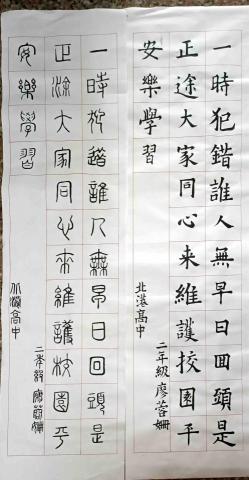 一時犯錯誰人無早日回頭是
正途大家同心来維護校園平
安樂學習
北港高中
二年級廖蓉姍
一時犯錯誰人無早日回頭是
正途大家同心來維護校園平
安樂學習
北港高中
二年級廖蓉姍